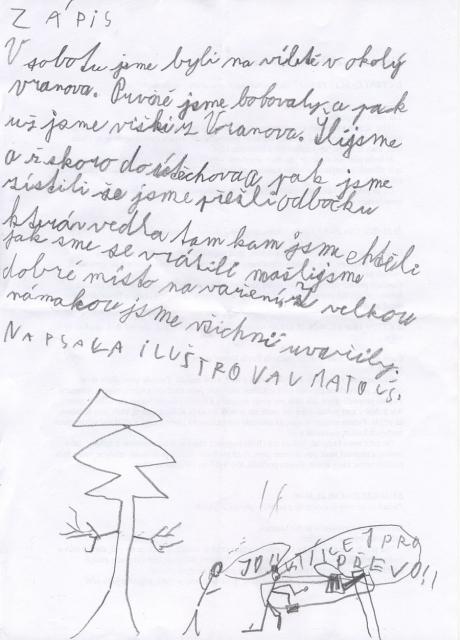 ZÁPIS
V sobotu jsme byli na víletě v okolý
vranova. Prvoře jsme bobovaly, a pak
už jsme viški z Vranova. Šlijsme
a ž skoro do ústěchova a pak jsme
zistili že jsme přešli odbočku
která vedla tam kam jsme chtěli
tak sme se vrátili našlijsme
dobré místo na vaření, ž velkou
námahou jsme všichni uvařily.
NAPSAL A ILUŠTROVAL MATOUŠ.
JO!!
1 PRO
DŘEVO!!